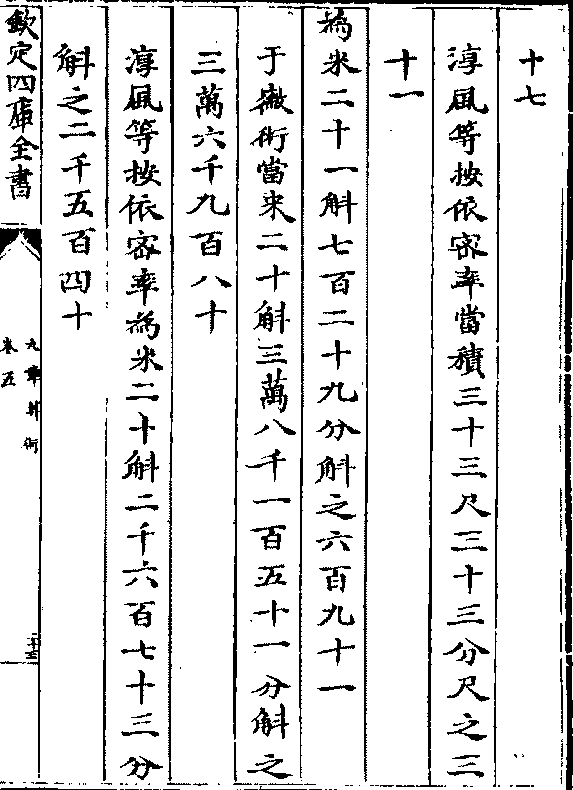 十七
淳風等按依密率當積三十三尺三十三分尺之三
十一
為米二十一斛七百二十九分斛之六百九十一
于徽術當米二十斛三萬八千一百五十一分斛之
三萬六千九百八十
淳風等按依密率為米二十斛二千六百七十三分
斛之二千五百四十
欽定四庫全書
九章算術
卷五